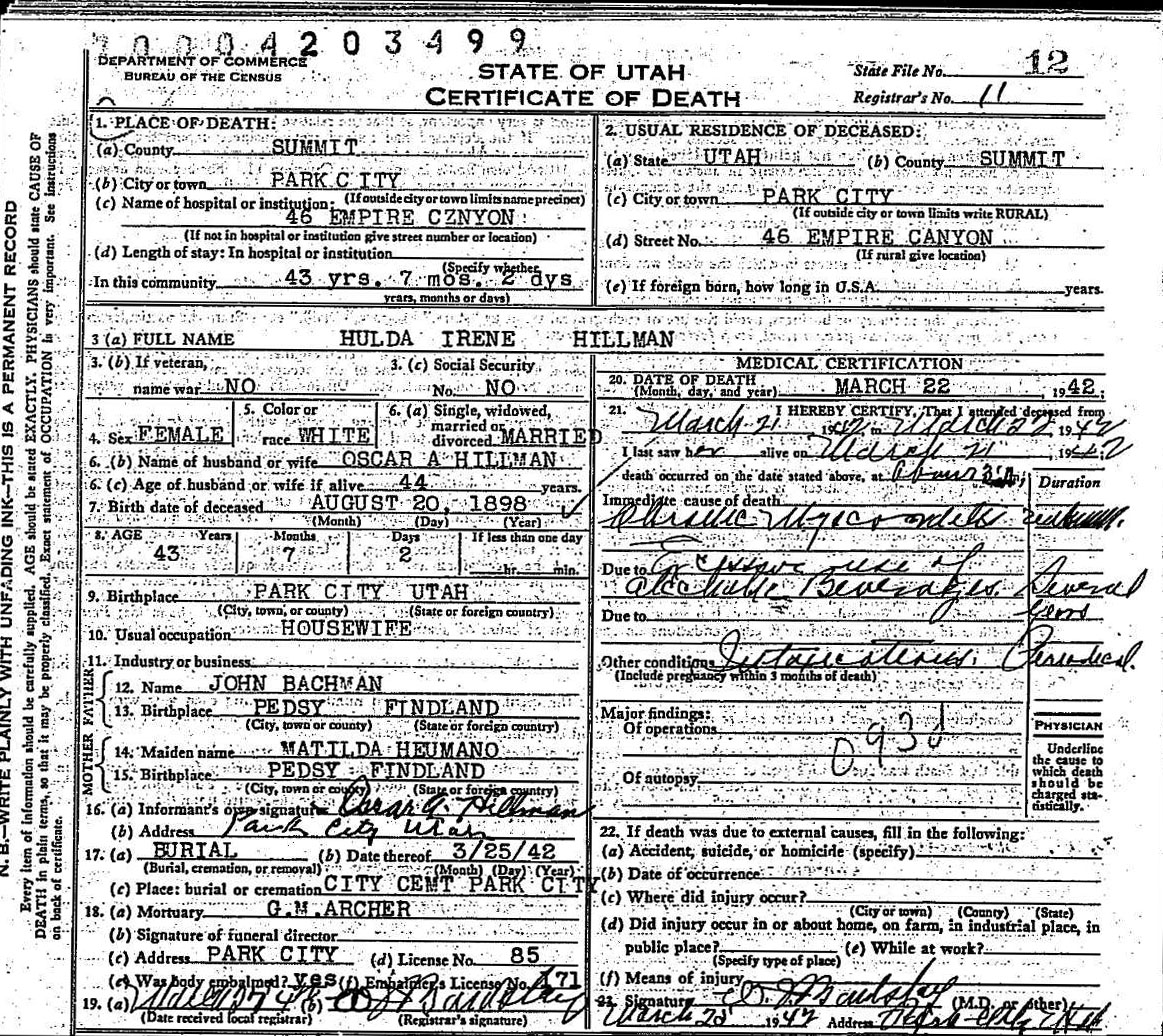 20004203499
DEPARTMENT OF COMMERCE
BUREAU OF THE CENSUS
STATE OF UTAH
CERTIFICATE OF DEATH
State File No. 12
Registrar's No. 11
N. B.—WRITE PLAINLY WITH UNFADING INK—THIS IS A PERMANENT RECORD
Every item of information should be carefully supplied. AGE should be stated EXACTLY. PHYSICIANS should state CAUSE OF
DEATH in plain terms, so that it may be properly classified. Exact statement of OCCUPATION is very important. See instructions
on back of certificate.
1. PLACE OF DEATH:
(a) County SUMMIT
(b) City or town PARK CITY
(If outside city or town limits name precinct)
(c) Name of hospital or institution:
46 EMPIRE CZNYON
(If not in hospital or institution give street number or location)
(d) Length of stay: In hospital or institution
(Specify whether
In this community 43 yrs. 7 mos. 2 dys
years, months or days)
2. USUAL RESIDENCE OF DECEASED:
(a) State UTAH (b) County SUMMIT
(c) City or town PARK CITY
(If outside city or town limits write RURAL)
(d) Street No. 46 EMPIRE CANYON
(If rural give location)
(e) If foreign born, how long in U.S.A. years.
3 (a) FULL NAME HULDA IRENE HILLMAN
3. (b) If veteran,
name war NO
3. (c) Social Security
No. NO
4. Sex FEMALE
5. Color or
race WHITE
6. (a) Single, widowed,
married or
divorced MARRIED
6. (b) Name of husband or wife OSCAR A HILLMAN
6. (c) Age of husband or wife if alive 44 years.
7. Birth date of deceased AUGUST 20, 1898
(Month) (Day) (Year)
8. AGE Years Months Days If less than one day
43 7 2 hr. min.
9. Birthplace PARK CITY UTAH
(City, town, or county) (State or foreign country)
10. Usual occupation HOUSEWIFE
11. Industry or business
FATHER
12. Name JOHN BACHMAN
13. Birthplace PEDSY FINDLAND
(City, town or county) (State or foreign country)
MOTHER
14. Maiden name MATILDA HEUMANO
15. Birthplace PEDSY FINDLAND
(City, town or county) (State or foreign country)
16. (a) Informant's own signature Oscar A. Hillman
(b) Address Park City Utah
17. (a) BURIAL (b) Date thereof 3/25/42
(Burial, cremation, or removal) (Month) (Day) (Year)
(c) Place: burial or cremation CITY CEMT PARK CITY
18. (a) Mortuary G.M.ARCHER
(b) Signature of funeral director
(c) Address PARK CITY (d) License No. 85
(e) Was body embalmed? yes (f) Embalmer's License No. 171
19. (a) (b)
(Date received local registrar) (Registrar's signature)
MEDICAL CERTIFICATION
20. DATE OF DEATH
(Month, day, and year) MARCH 22 1942;
21. I HEREBY CERTIFY, That I attended deceased from
March 21 1942 to March 22 1942
I last saw her alive on March 21 1942
death occurred on the date stated above, at About m.
Duration
Immediate cause of death
Chronic Myocarditis
Due to Excessive use of
Alcoholic Beverages. Several
Due to years
Other conditions Intoxications. Periodical.
(Include pregnancy within 3 months of death)
Major findings:
Of operations
093d
Of autopsy
PHYSICIAN
Underline
the cause to
which death
should be
charged sta-
tistically.
22. If death was due to external causes, fill in the following:
(a) Accident, suicide, or homicide (specify)
(b) Date of occurrence
(c) Where did injury occur?
(City or town) (County) (State)
(d) Did injury occur in or about home, on farm, in industrial place, in
public place? (e) While at work?
(Specify type of place)
(f) Means of injury
23. Signature (M.D. or other)
March 1942 Address Park City Utah